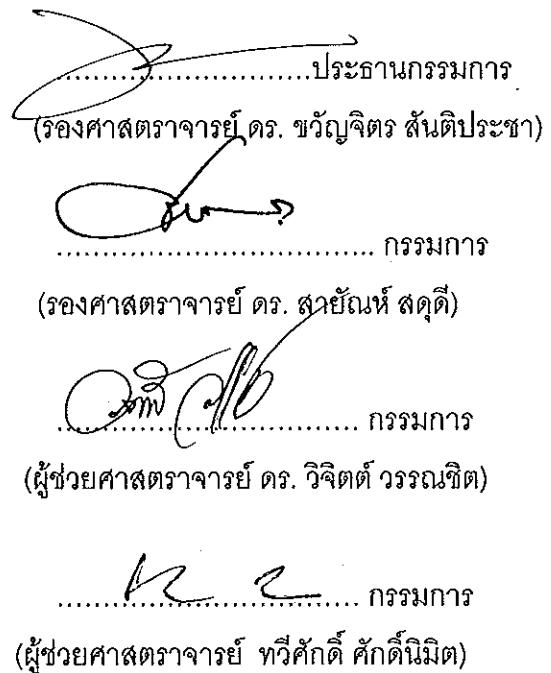 ..............................ประธานกรรมการ
(รองศาสตราจารย์ ดร. ขวัญจิตร สันติประชา)
.................................... กรรมการ
(รองศาสตราจารย์ ดร. สายัณห์ สดุดี)
.................................. กรรมการ
(ผู้ช่วยศาสตราจารย์ ดร. วิจิตต์ วรรณชิต)
.................................. กรรมการ
(ผู้ช่วยศาสตราจารย์ ทวีศักดิ์ ศักดิ์นิมิต)